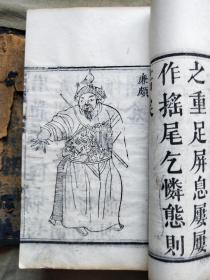 之重足屏息屢屢
作搖尾乞憐態則
廉頗